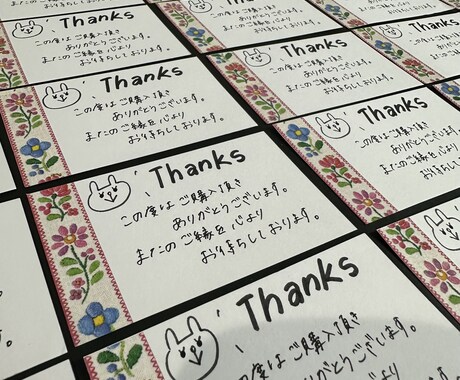 Thanks
この度はご購入頂き
ありがとうございます。
またのご縁を心より
お待ちしております。
Thanks
この度はご購入頂き
ありがとうございます。
またのご縁を心より
お待ちしております。
Thanks
この度はご購入頂き
ありがとうございます。
またのご縁を心より
お待ちしております。
Thanks
この度はご購入頂き
ありがとうございます。
またのご縁を心より
お待ちしております。
Thanks
この度はご購入頂き
ありがとうございます。
またのご縁を心より
お待ちしております。
Thanks
この度はご購入頂き
ありがとうございます。